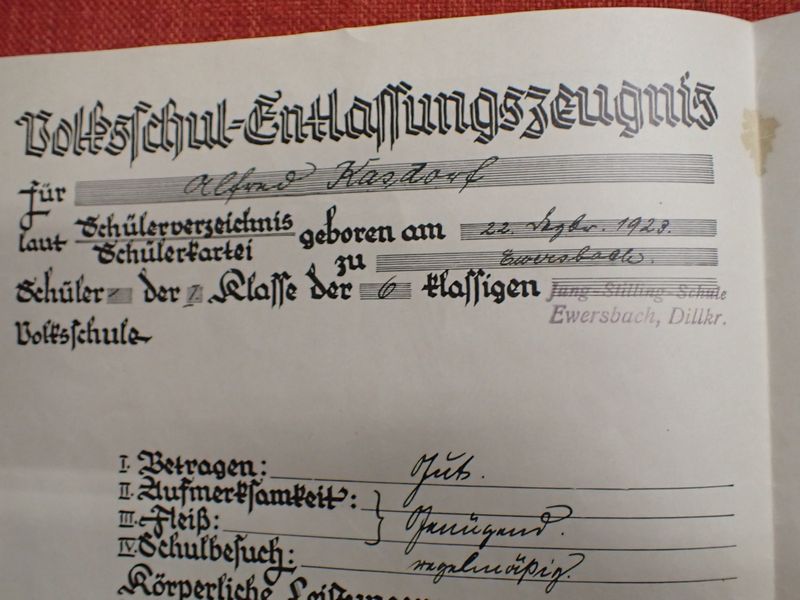 Volksschul-Entlassungszeugnis
Für Alfred Kasdorf
laut Schülerverzeichnis geboren am 22. Dezbr. 1923.
Schülerkartei zu Ewersbach.
Schüler der 1. Klasse der 6 klassigen Jung-Stilling-Schule
Volksschule Ewersbach, Dillkr.
I. Betragen: Gut.
II. Aufmerksamkeit:
III. Fleiß: Genügend.
IV. Schulbesuch: regelmäßig.
Körperliche Leistungen